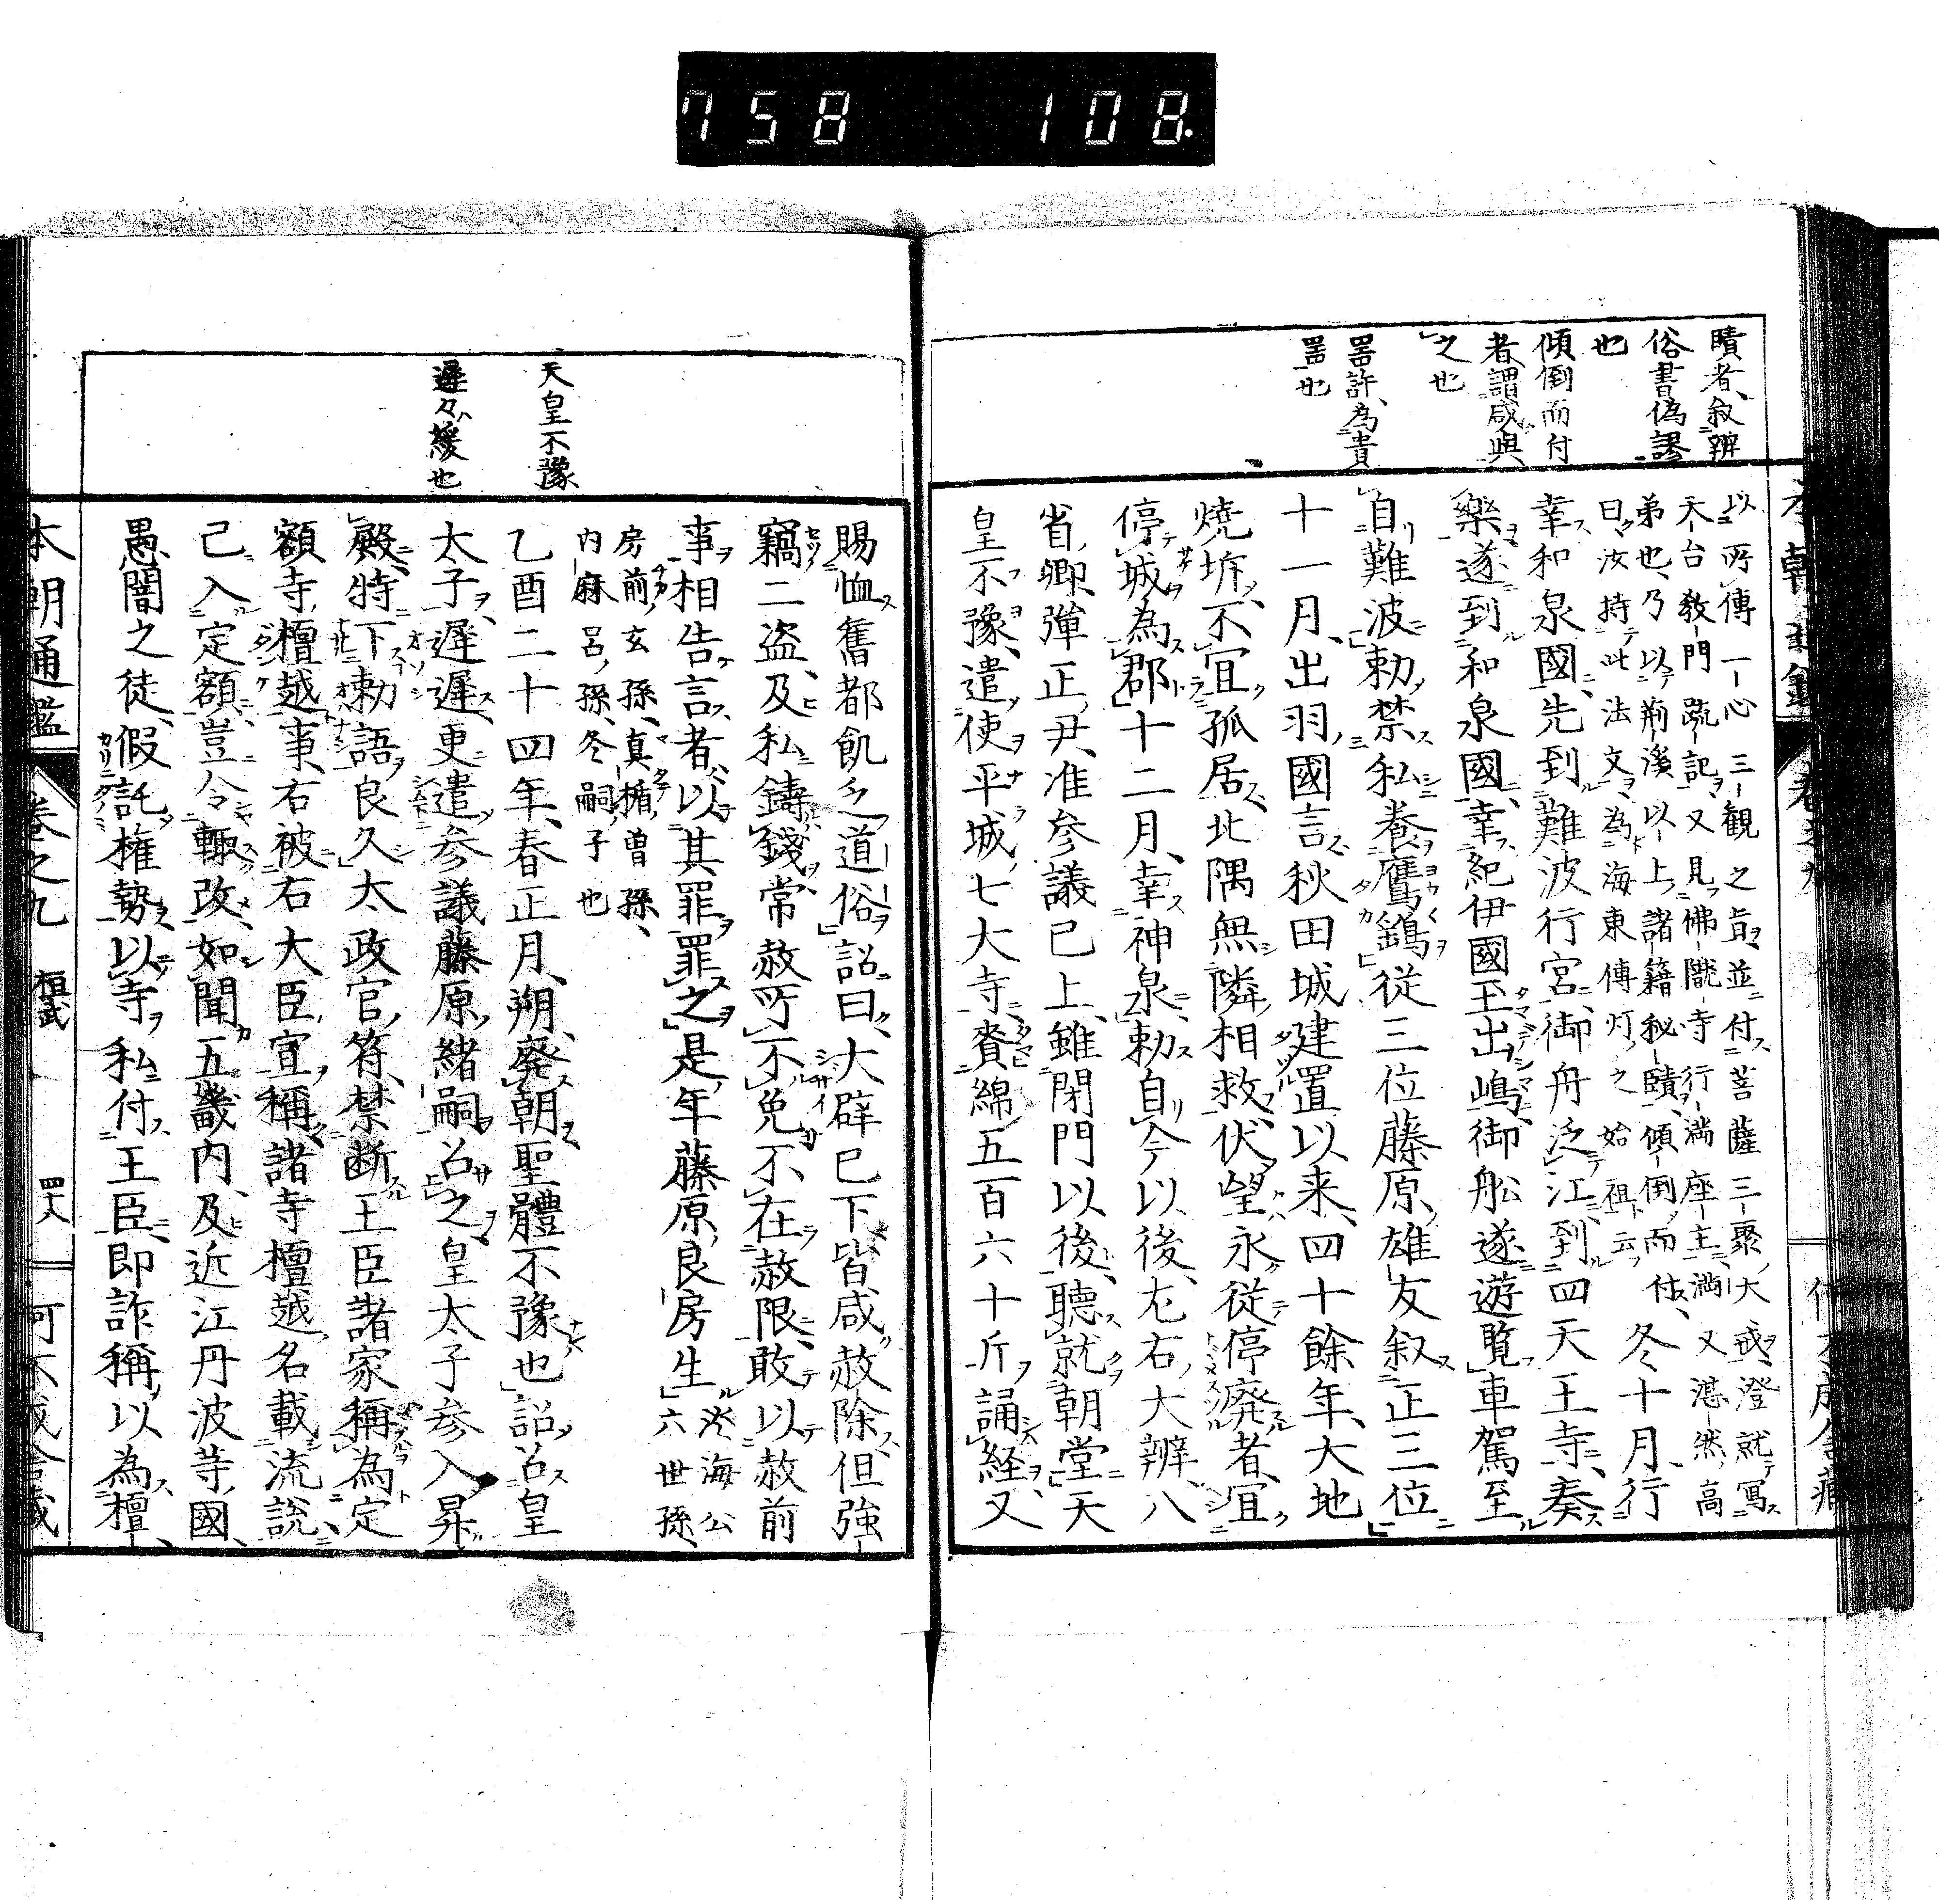 758 108.
賾者、叙辨
俗書偽謬
也
傾倒而付
者謂咸與
之也
詈許、為責
詈也
以所傳一心三観之旨並付菩薩三聚大戒、澄就寫
天台教門䟽記、又見佛隴寺行満座主、満又湛然高
弟也、乃以荊溪以上諸籍秘賾、傾倒而付、
曰汝持此法文、為海東傳灯之始祖云、冬十月、行
幸和泉國、先到難波行宮、御舟泛江、到四天王寺、奏
樂遂到和泉國、幸紀伊國玉出嶋、御舩遂遊覧車駕至
自難波勅禁私養鷹鷂従三位藤原雄友叙正三位
十一月、出羽國言秋田城建置以来、四十餘年、大地
焼垳、不宜孤居北隅無隣相救、伏望永従停廃者、宜
停城為郡十二月、幸神泉勅自今以後、左右大辨、八
省卿、彈正尹、准参議已上、雖閉門以後、聴就朝堂天
皇不豫、遣使平城七大寺、賫綿五百六十斤、誦経、又
天皇不豫
遲々緩也
賜恤舊都飢乏道俗詔曰、大辟已下皆咸赦除、但強
竊二盗、及私鑄錢、常赦所不免、不在赦限、敢以赦前
事相告言者、以其罪罪之是年藤原良房生淡海公
六世孫、
房前玄孫、真楯曽孫、
内麻呂孫、冬嗣子也
乙酉二十四年、春正月、朔、廃朝聖體不豫也詔召皇
太子、遲遲更遣参議藤原緒嗣召之、皇太子参入、昇
殿、特下勅語、良久太政官符、禁断王臣諸家稱為定
額寺檀越事、右被右大臣宣稱、諸寺檀越名載流説
已入定額、豈令輙改、如聞五畿内、及近江丹波等國、
愚闇之徒、假託權勢、以寺私付王臣、即詐稱、以為檀、
本朝通鑑
卷之九
桓武